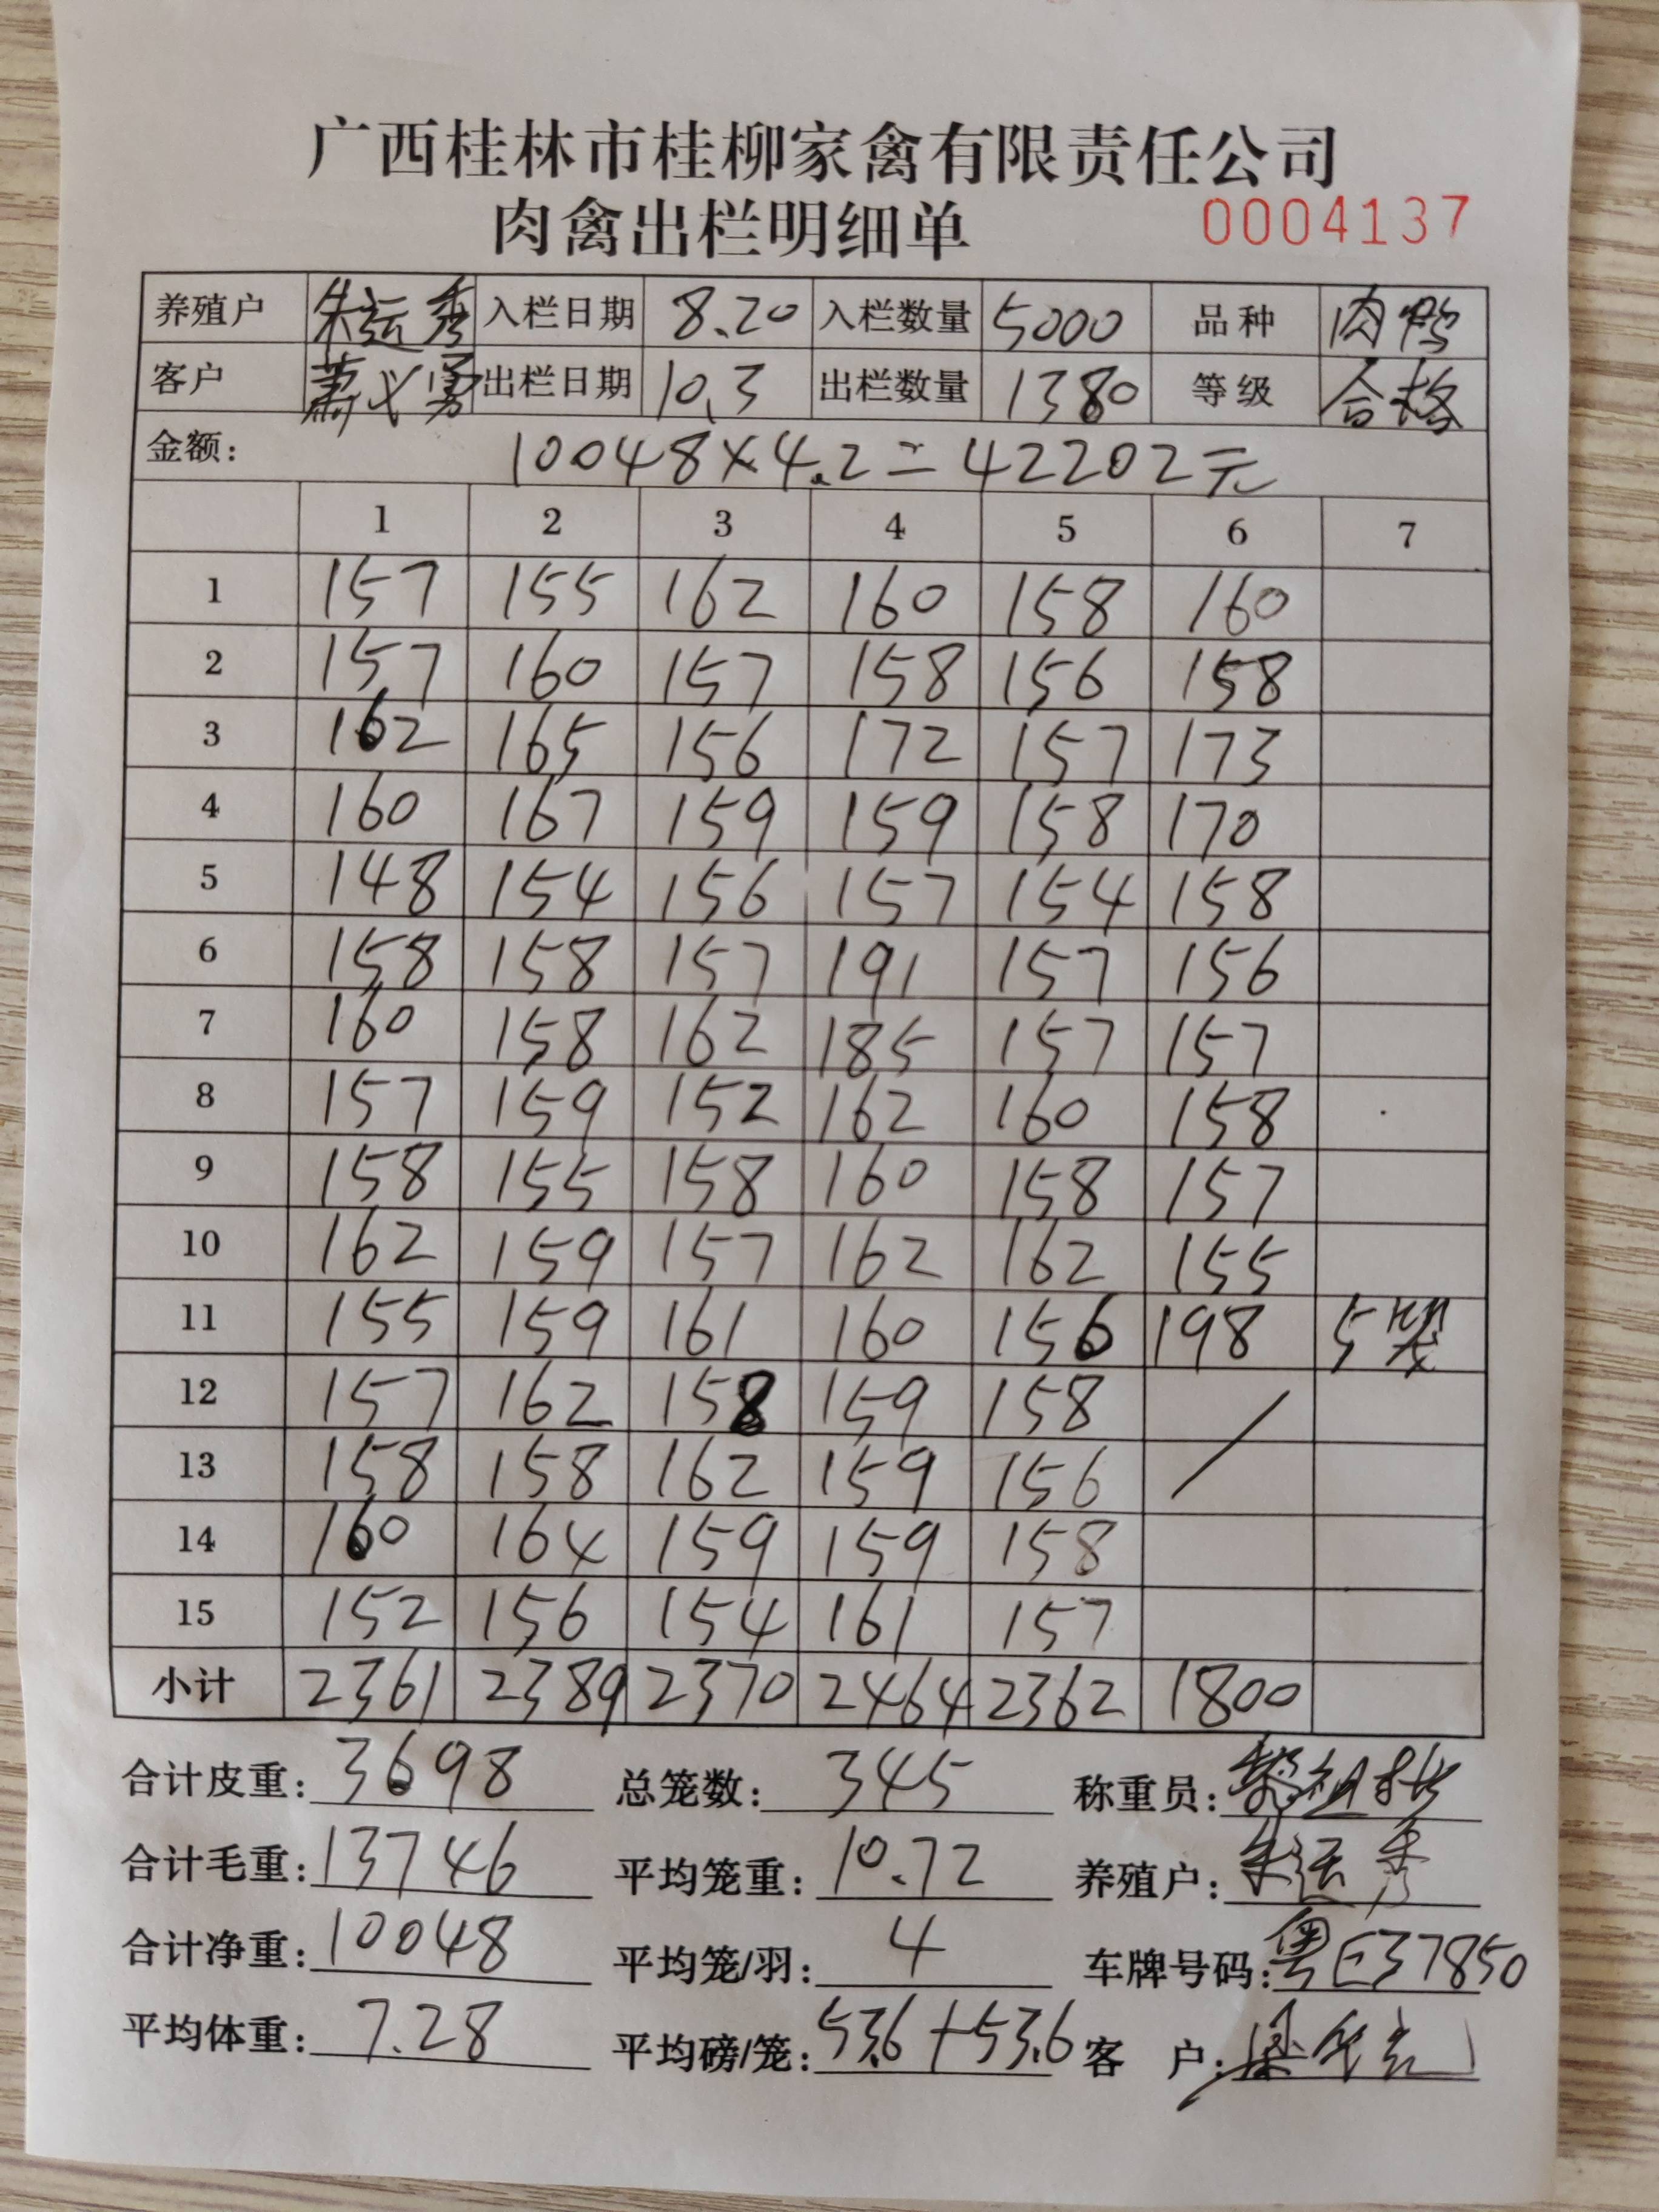 广西桂林市桂柳家禽有限责任公司
肉禽出栏明细单 0004137
养殖户 朱运秀 入栏日期 8.20 入栏数量 5000 品种 肉鸭
客户 萧义勇 出栏日期 10.3 出栏数量 1380 等级 合格
金额： 10048×4.2=42202元
1 2 3 4 5 6 7
1 157 155 162 160 158 160
2 157 160 157 158 156 158
3 162 165 156 172 157 173
4 160 167 159 159 158 170
5 148 154 156 157 154 158
6 158 158 157 191 157 156
7 160 158 162 185 157 157
8 157 159 152 162 160 158
9 158 155 158 160 158 157
10 162 159 157 162 162 155
11 155 159 161 160 156 198 5
12 157 162 158 159 158
13 158 158 162 159 156
14 160 164 159 159 158
15 152 156 154 161 157
小计 2361 2389 2370 2464 2362 1800
合计皮重：3698 总笼数：345 称重员：
合计毛重：13746 平均笼重：10.72 养殖户：朱运秀
合计净重：10048 平均笼/羽：4 车牌号码：粤E37850
平均体重：7.28 平均磅/笼：53.6+53.6 客 户：